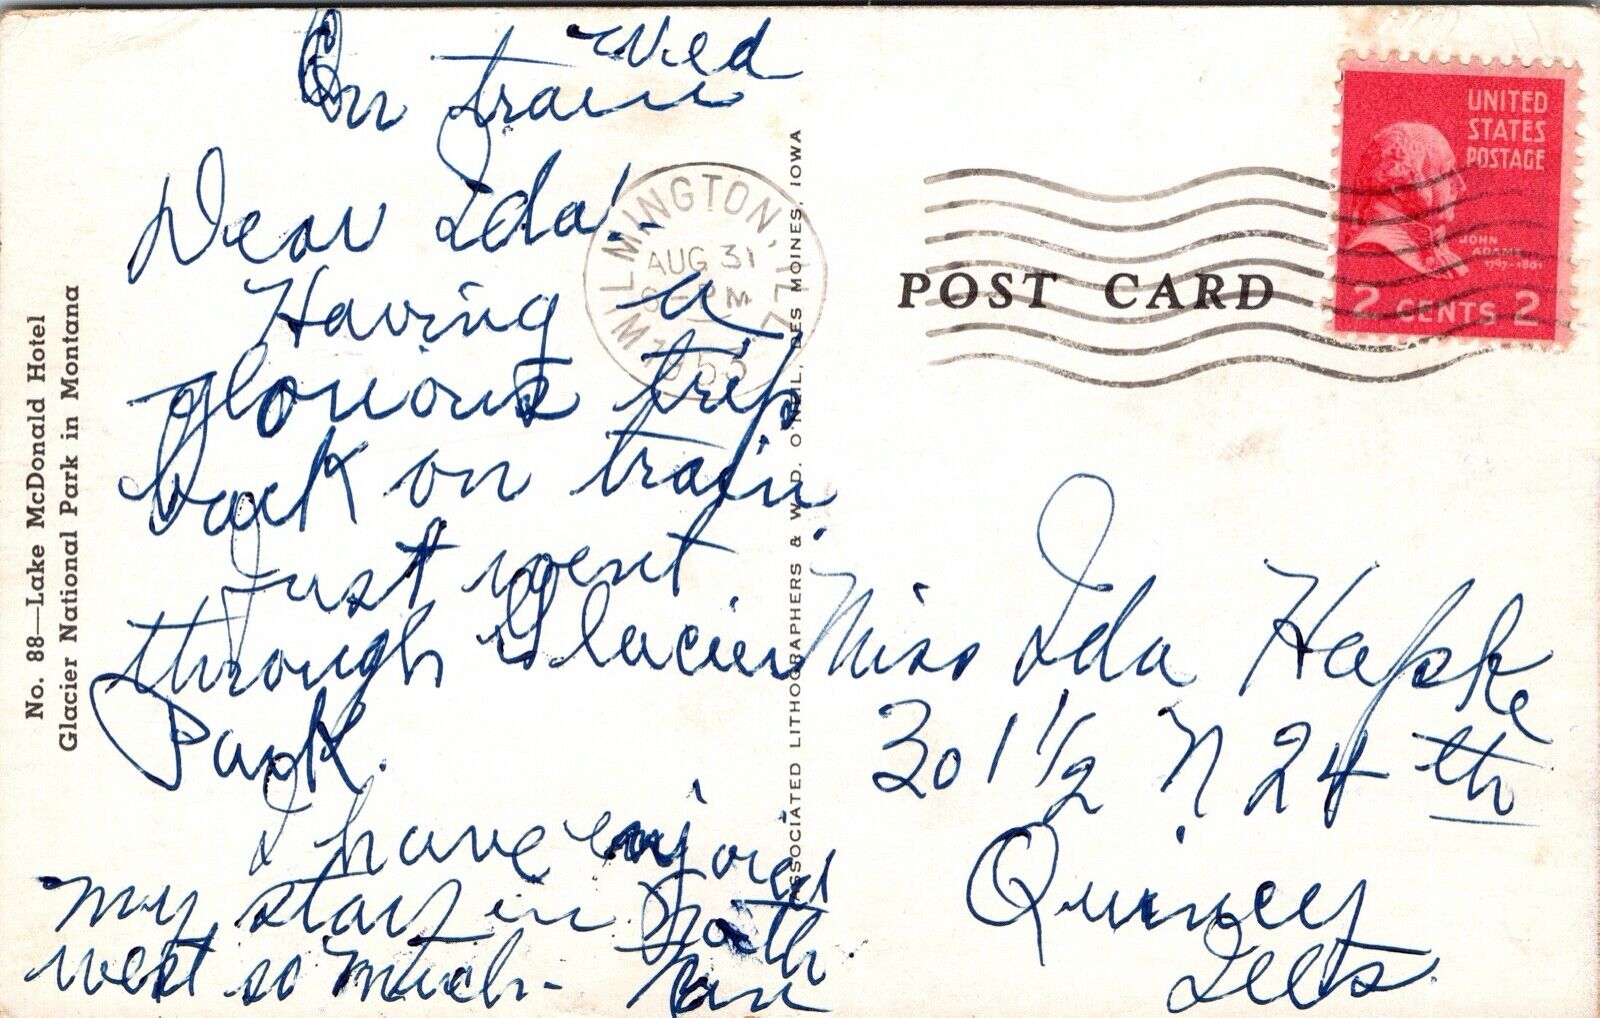 Wed
On train
Dear Ida!
Having a
glorious trip
back on train.
Just went
through Glacier
Park.
I have enjoyed
my stay in North
west so much -
No. 88—Lake McDonald Hotel
Glacier National Park in Montana
ASSOCIATED LITHOGRAPHERS & W. D. O'NEIL, DES MOINES, IOWA
WILMINGTON, ILL.
AUG 31
PM
POST CARD
UNITED
STATES
POSTAGE
JOHN
ADAMS
1797-1801
2 CENTS 2
Miss Ida Hapke
301 1/2 N 24 th
Quincy
Ills.